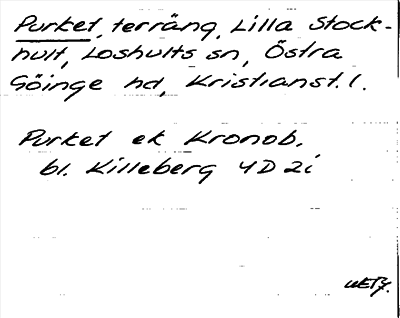 Purket, terräng, Lilla Stock-
hult, Loshults sn, Östra
Göinge hd, Kristianst. l.
Purket ek Kronob.
bl. Killeberg 4D 2i